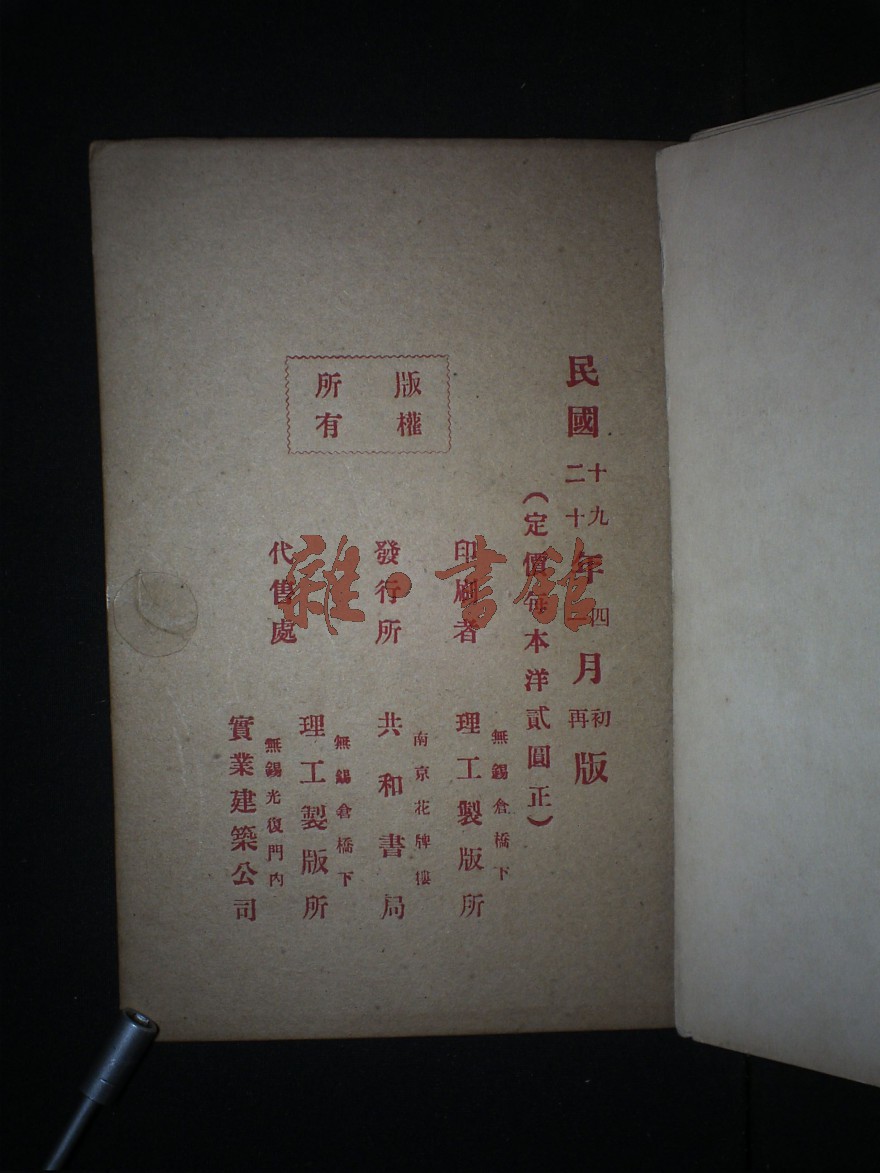 民國十九二十年四月初再版
(定價每本洋貳圓正)
版權
所有
印刷者
無錫倉橋下
理工製版所
發行所
南京花牌樓
共和書局
代售處
無錫倉橋下
理工製版所
無錫光復門內
實業建築公司
雜·書館